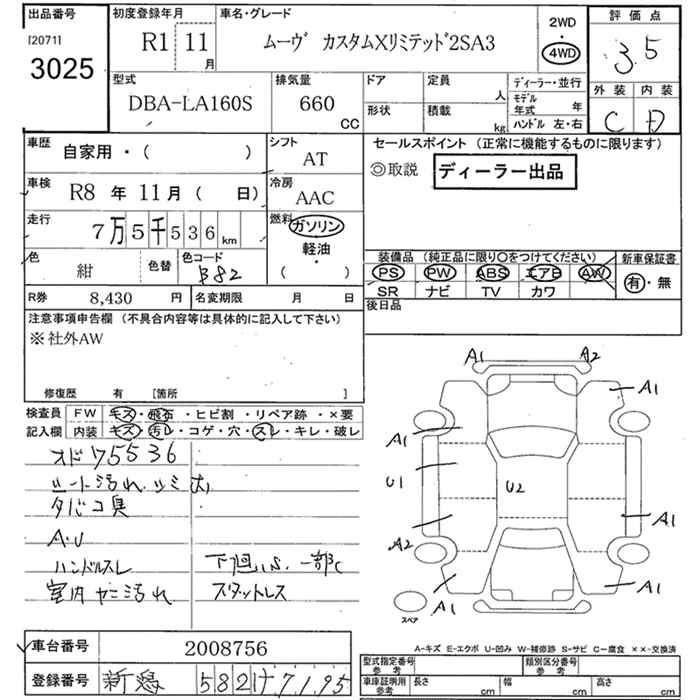 出品番号
[2071]
3025
初度登録年月
R1 11月
車名・グレード
ムーヴ カスタムXリミテッド2SA3
2WD
・
4WD
評価点
3.5
型式
DBA-LA160S
排気量
660 CC
ドア
定員 人
形状
積載 kg
ディーラー・並行
モデル年式 年
ハンドル 左・右
外装 内装
C D
車歴
自家用・( )
シフト
AT
車検
R8 年 11月 ( 日)
冷房
AAC
走行
7万5千536km
燃料
ガソリン
軽油・
( )
色
紺
色替
色コード
B82
R券 8,430 円
名変期限 月 日
セールスポイント (正常に機能するものに限ります)
◎取説 ディーラー出品
装備品 (純正品に限り○をつけてください)
PS PW ABS エアB AW
SR ナビ TV カワ
新車保証書
有・無
後日品
注意事項申告欄 (不具合内容等は具体的に記入して下さい)
※社外AW
修復歴 有 [箇所 ]
検査員 FW キズ・飛石・ヒビ割・リペア跡・×要
記入欄 内装 キズ・汚レ・コゲ・穴・スレ・キレ・破レ
オド75536
シート汚れ シミ 大
タバコ臭
A・U
ハンドルスレ 下廻りS.一部C
室内ヤニ汚れ スタットレス
A1 A2
A1
A1
U1
U2
A1
A2
A1
A1
スペア
A-キズ E-エクボ U-凹み W-補修跡 S-サビ C-腐食 ××-交換済
車台番号 2008756
登録番号 新潟 582 け 7195
型式指定番号 参考
類別区分番号 参考
車庫証明用 参考
長さ cm 幅 cm 高さ cm